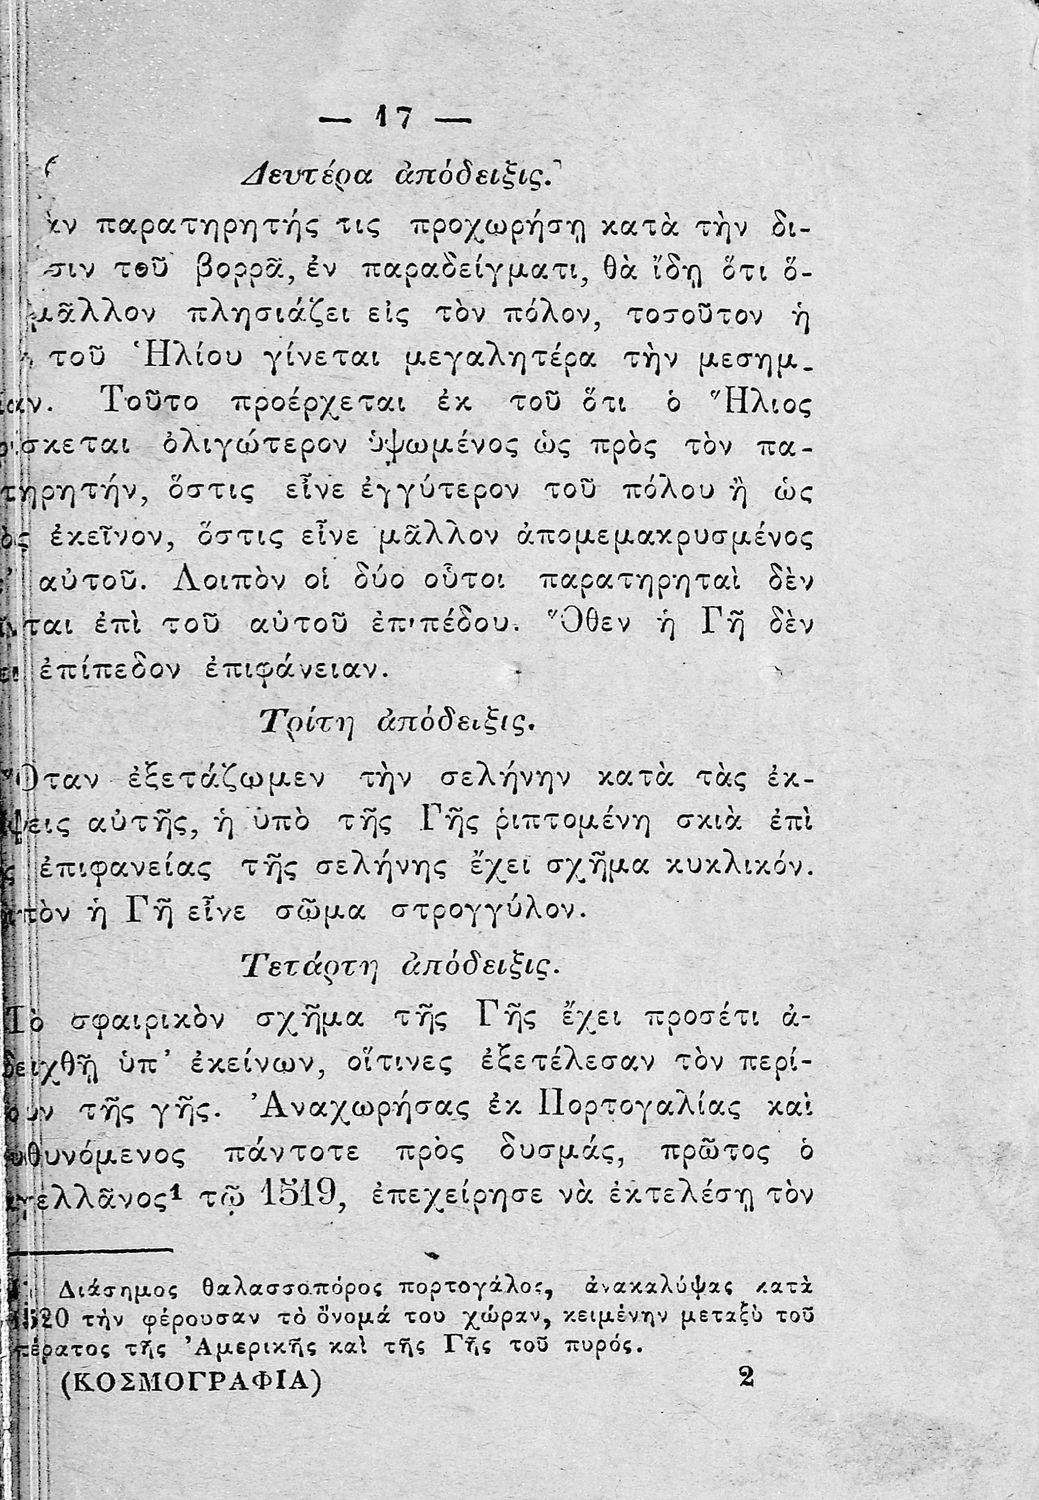 — 17 —
Δευτέρα ἀπόδειξις.
παρατηρητής τις προχωρήσῃ κατὰ τὴν δι-
τοῦ βορρᾶ, ἐν παραδείγματι, θὰ ἴδῃ ὅτι ὅ-
μᾶλλον πλησιάζει εἰς τὸν πόλον, τοσοῦτον ἡ
τοῦ Ἡλίου γίνεται μεγαλητέρα τὴν μεσημ-
Τοῦτο προέρχεται ἐκ τοῦ ὅτι ὁ Ἥλιος
ὀλιγώτερον ὑψωμένος ὡς πρὸς τὸν πα-
τηρητήν, ὅστις εἶνε ἐγγύτερον τοῦ πόλου ἢ ὡς
ἐκεῖνον, ὅστις εἶνε μᾶλλον ἀπομεμακρυσμένος
αὐτοῦ. Λοιπὸν οἱ δύο οὗτοι παρατηρηταὶ δὲν
ἐπὶ τοῦ αὐτοῦ ἐπιπέδου. Ὅθεν ἡ Γῆ δὲν
ἐπίπεδον ἐπιφάνειαν.
Τρίτη ἀπόδειξις.
Ὅταν ἐξετάζωμεν τὴν σελήνην κατὰ τὰς ἐκ-
ψεις αὐτῆς, ἡ ὑπὸ τῆς Γῆς ῥιπτομένη σκιὰ ἐπὶ
ἐπιφανείας τῆς σελήνης ἔχει σχῆμα κυκλικόν.
ἡ Γῆ εἶνε σῶμα στρογγύλον.
Τετάρτη ἀπόδειξις.
Τὸ σφαιρικὸν σχῆμα τῆς Γῆς ἔχει προσέτι ἀ-
δειχθῆ ὑπ' ἐκείνων, οἵτινες ἐξετέλεσαν τὸν περί-
τῆς γῆς. Ἀναχωρήσας ἐκ Πορτογαλίας καὶ
πάντοτε πρὸς δυσμάς, πρῶτος ὁ
γελλᾶνος¹ τῷ 1519, ἐπεχείρησε νὰ ἐκτελέσῃ τὸν
Διάσημος θαλασσοπόρος πορτογάλος, ἀνακαλύψας κατὰ
1520 τὴν φέρουσαν τὸ ὄνομά του χώραν, κειμένην μεταξὺ τοῦ
πέρατος τῆς Ἀμερικῆς καὶ τῆς Γῆς τοῦ πυρός.
(ΚΟΣΜΟΓΡΑΦΙΑ) 2